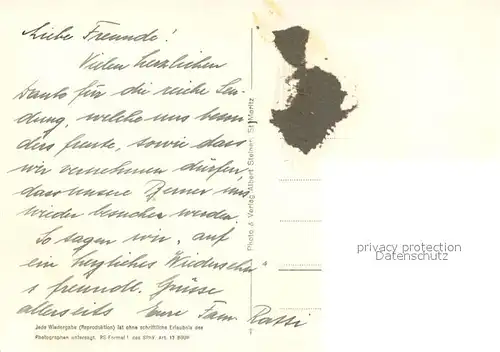 Liebe Freunde!
Vielen herzlichen
Dank für die reiche Sen-
dung, welche uns beson
ders freute, sowie dass
wir vernehmen dürfen
dass unsere Berner uns
wieder besuchen werden.
So sagen wir, auf
ein herzliches Wiedersehn
s freundl. Grüsse
allerseits Eure Fam. Ratti
Jede Wiedergabe (Reproduktion) ist ohne schriftliche Erlaubnis des
Photographen untersagt. RS Format 1 das StGV. Art. 17
Photo & Verlag Albert Steiner, St. Moritz
privacy protection
Datenschutz